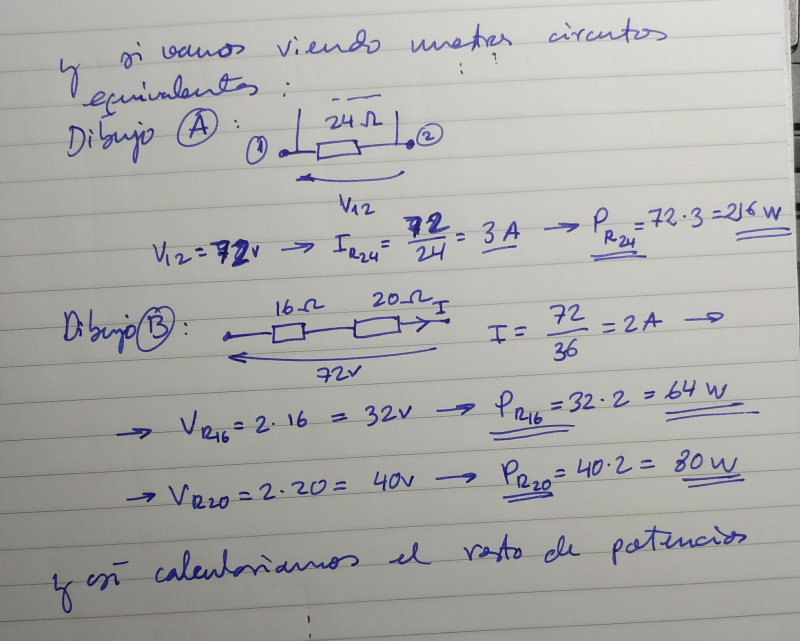 y si vamos viendo nuestros circuitos
equivalentes :
Dibujo A :
24 Ω
1 2
V12
V12 = 72v → IR24 = 72/24 = 3 A → PR24 = 72·3 = 216 W
Dibujo B :
16 Ω 20 Ω I
72v
I = 72/36 = 2 A →
→ VR16 = 2·16 = 32v → PR16 = 32·2 = 64 W
→ VR20 = 2·20 = 40v → PR20 = 40·2 = 80 W
y así calcularíamos el resto de potencias